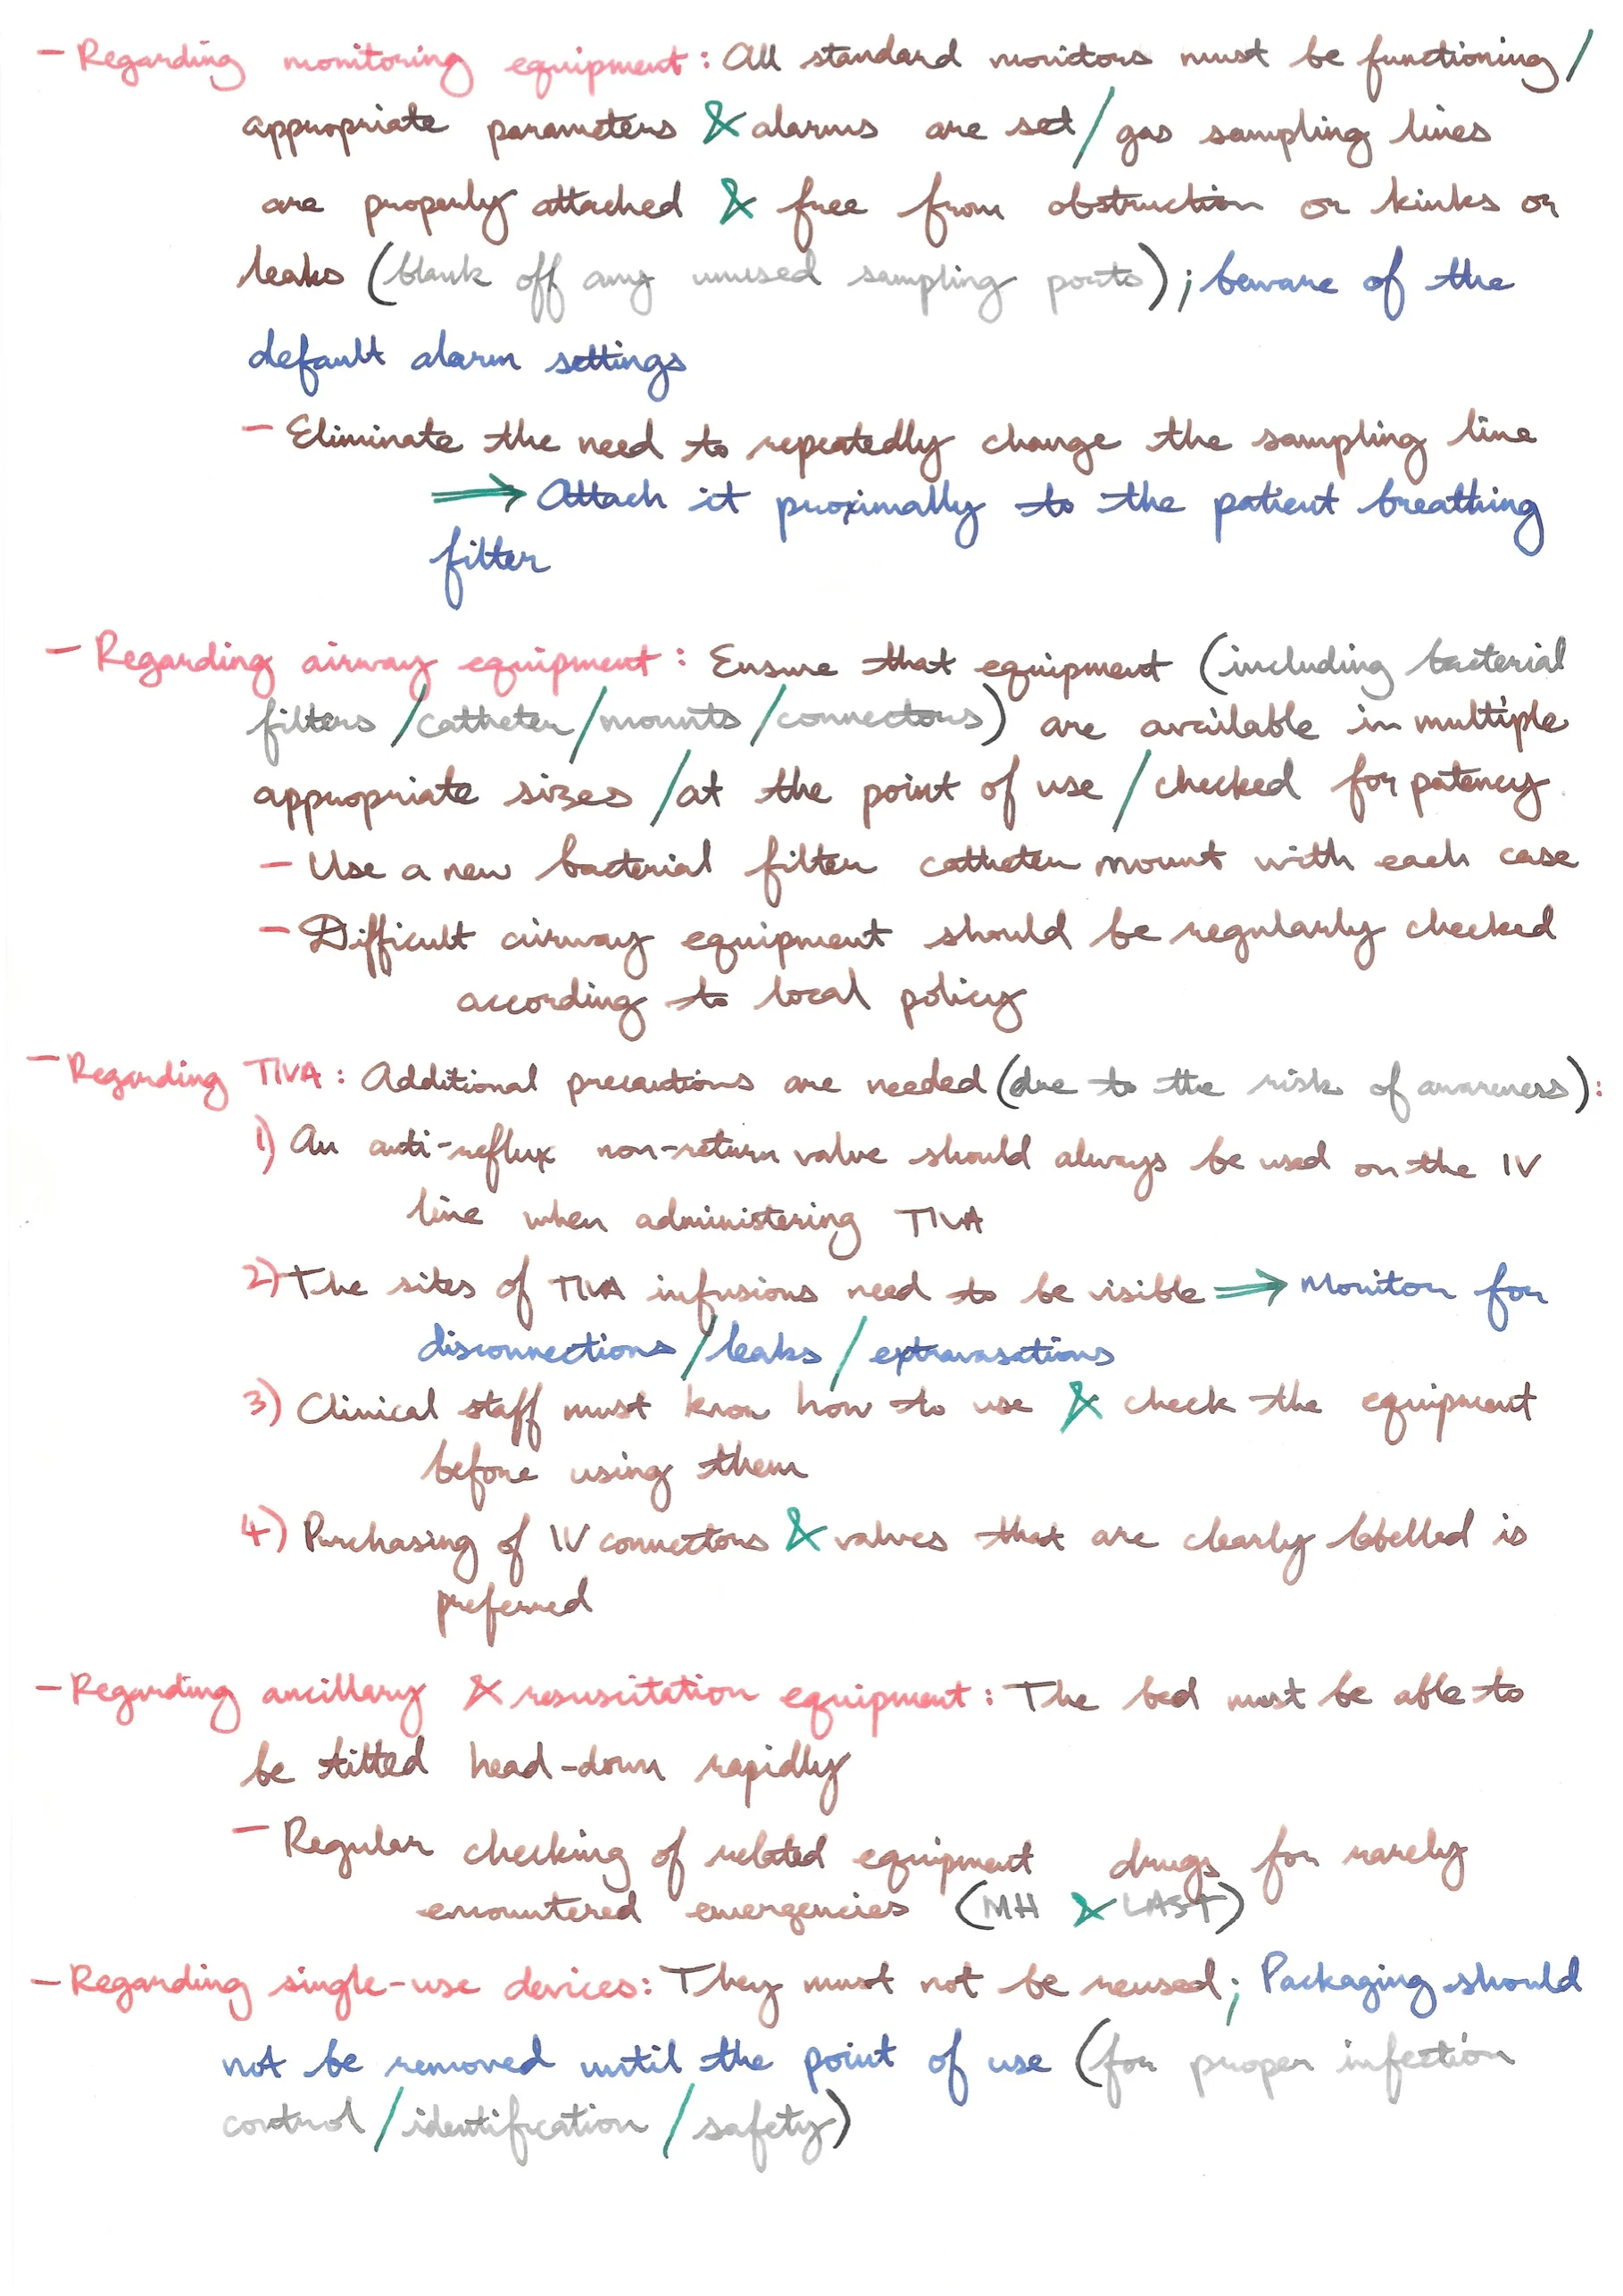 - Regarding monitoring equipment: All standard monitors must be functioning/
appropriate parameters & alarms are set/gas sampling lines
are properly attached & free from obstruction or kinks or
leaks (blank off any unused sampling ports); beware of the
default alarm settings
- Eliminate the need to repeatedly change the sampling line
⇒ Attach it proximally to the patient breathing
filter
- Regarding airway equipment: Ensure that equipment (including bacterial
filters/catheter/mounts/connectors) are available in multiple
appropriate sizes/at the point of use/checked for patency
- Use a new bacterial filter catheter mount with each case
- Difficult airway equipment should be regularly checked
according to local policy
- Regarding TIVA: Additional precautions are needed (due to the risk of awareness):
1) An anti-reflux non-return valve should always be used on the IV
line when administering TIVA
2) The sites of TIVA infusions need to be visible ⇒ Monitor for
disconnections/leaks/extravasations
3) Clinical staff must know how to use & check the equipment
before using them
4) Purchasing of IV connectors & valves that are clearly labelled is
preferred
- Regarding ancillary & resuscitation equipment: The bed must be able to
be tilted head-down rapidly
- Regular checking of related equipment drugs for rarely
encountered emergencies (MH & LAST)
- Regarding single-use devices: They must not be reused; Packaging should
not be removed until the point of use (for proper infection
control/identification/safety)